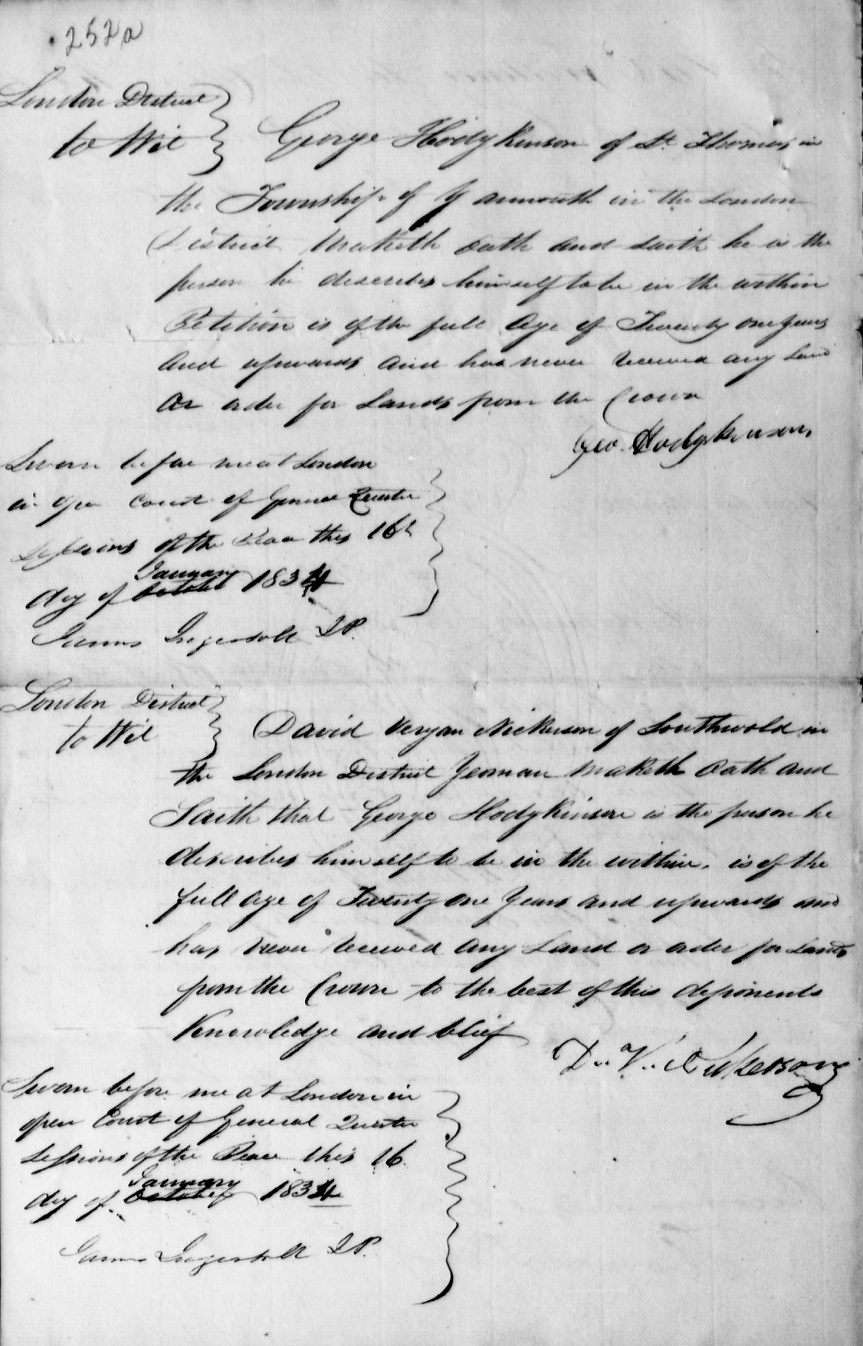 252a
London District
to Wit
George Hodgkinson of St. Thomas in
the Township of Yarmouth in the London
District Maketh Oath and Saith he is the
person he describes himself to be in the within
Petition is of the full Age of Twenty one Years
and upwards and has never received any Land
or order for Lands from the Crown
Geo. Hodgkinson
Sworn before me at London
in open Court of General Quarter
Sessions of the Peace this 16h
day of October January 1834
James Ingersoll JP.
London District
to Wit
David Nickerson of Southwold in
the London District Yeoman Maketh Oath and
Saith that George Hodgkinson is the person he
describes himself to be in the within, is of the
full Age of Twenty one Years and upwards and
has never received any Land or order for Lands
from the Crown to the best of this deponents
Knowledge and blief
D. V. Nickerson
Sworn before me at London in
open Court of General Quarter
Sessions of the Peace this 16
day of October January 1834
James Ingersoll JP.